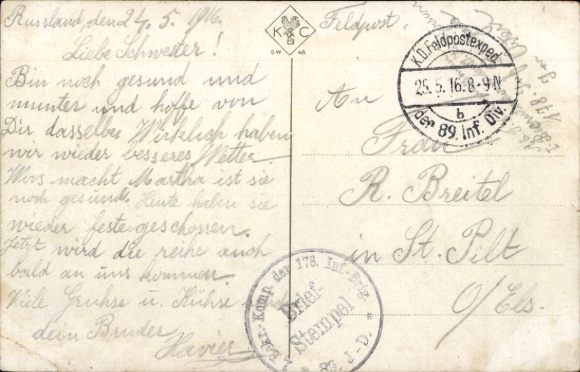 Russland, den 24.5.1916.
Liebe Schwester!
Bin noch gesund und
munter und hoffe von
Dir dasselbe. Wirklich haben
wir wieder besseres Wetter.
Wos macht Martha ist sie
noch gesund. Heute haben sie
wieder feste geschossen.
Jetzt wird die reihe auch
bald an uns kommen.
Viele Grühse u. Kühse
dein Bruder
Xavier
K & C
B
SW 48
Feldpost.
An
Frau
R. Breitel
in St. Pilt
O/Els.
K.D. Feldpostexped.
25.5.16. 8-9 N
b
der 89. Inf. Div.
Komp. der 178. Inf.-Brig.
Brief-
Stempel
89. I.-D.